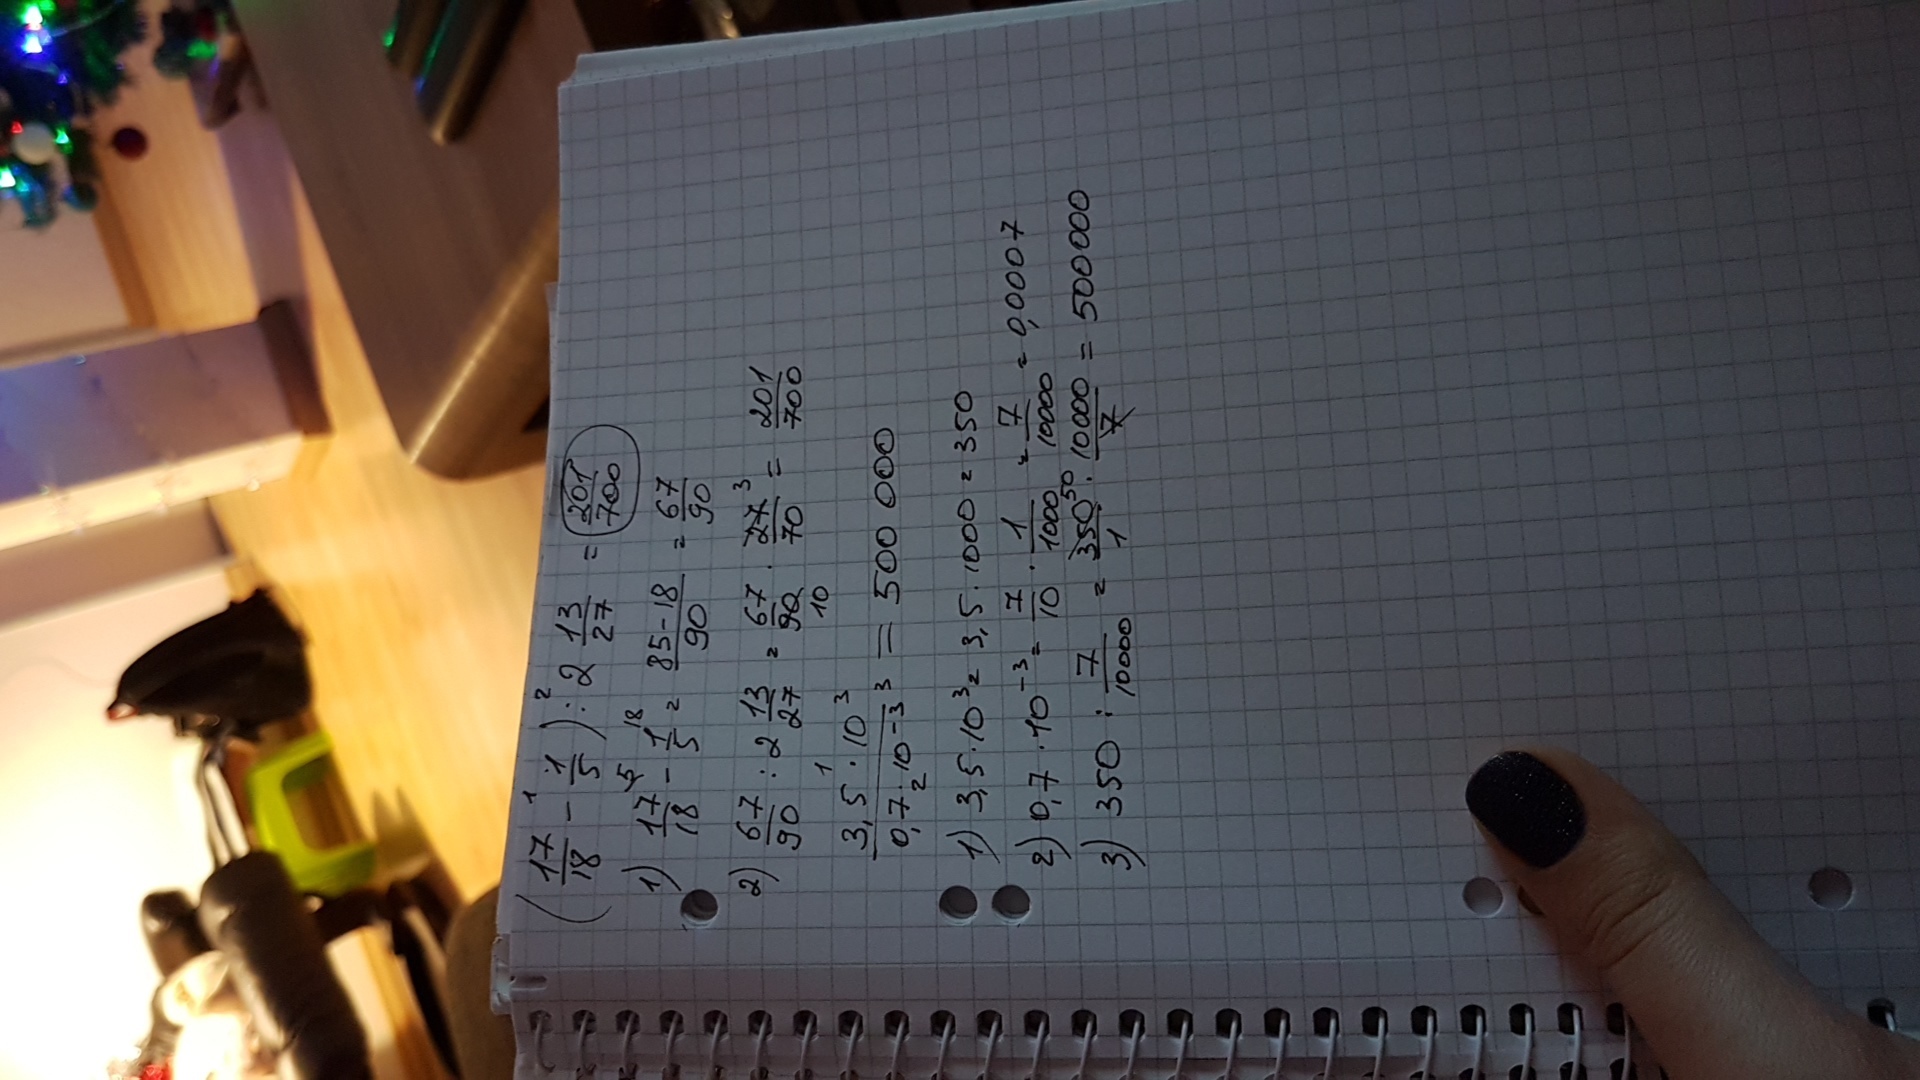 ( 17/18 -¹ 1/5 ) :² 2 13/27 = 201/700
1) 17/18 ⁵ - 1/5 ¹⁸ = 85-18/90 = 67/90
2) 67/90 : 2 13/27 = 67/90 10 · 27³/70 = 201/700
3,5 ·¹ 10³
0,7 ·₂ 10⁻³ ³ = 500 000
1) 3,5 · 10³ = 3,5 · 1000 = 350
2) 0,7 · 10⁻³ = 7/10 · 1/1000 = 7/10000 = 0,0007
3) 350 : 7/10000 = 350⁵⁰/1 · 10000/7 = 500000